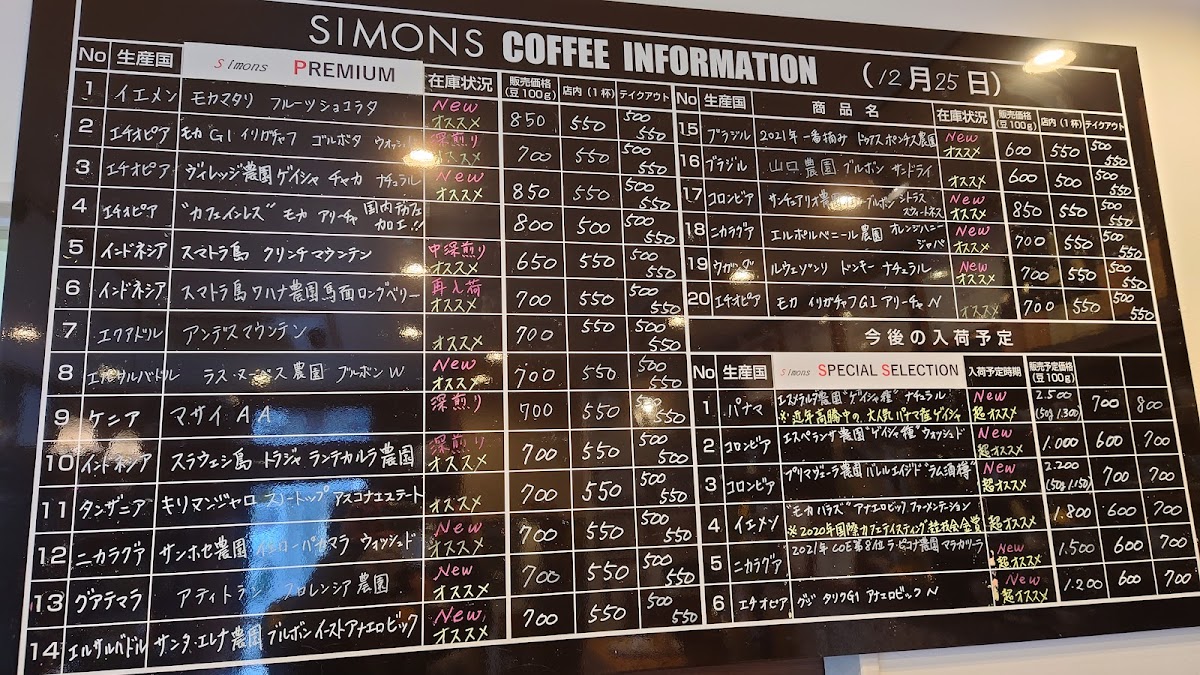 SIMONS COFFEE INFORMATION (12月25日)
No 生産国 simons PREMIUM 在庫状況 販売価格(豆100g) 店内(1杯) テイクアウト
1 イエメン モカマタリ フルーツショコラタ New オススメ 850 550 500 550
2 エチオピア モカ G1 イリガチャフ ゴルボタ 深煎り オススメ 700 550 500 550
3 エチオピア ヴィレッジ農園ゲイシャ チャカ ナチュラル New オススメ 850 550 500 550
4 エチオピア "カフェインレス" モカ アリーチャ 国内デカフェ加工!! 800 500 500 550
5 インドネシア スマトラ島 クリンチマウンテン 中深煎り オススメ 650 550 500 550
6 インドネシア スマトラ島ワハナ農園馬面ロングベリー 再入荷 オススメ 700 550 500 550
7 エクアドル アンデスマウンテン オススメ 700 550 500 550
8 エルサルバドル ラス・ 農園 ブルボン W New オススメ 700 550 500 550
9 ケニア マサイ AA 深煎り 700 550 500 550
10 インドネシア スラウェシ島 トラジャ ランテカルラ農園 深煎り オススメ 700 550 500 550
11 タンザニア キリマンジャロ スノートップ アスコナエステート オススメ 700 550 500 550
12 ニカラグア サンホセ農園 イエローパカマラ ウォッシュド New オススメ 700 550 500 550
13 グアテマラ アティトラン フロレンシア農園 New オススメ 700 550 500 550
14 エルサルバドル サンタ・エレナ農園 ブルボン イースト アナエロビック New オススメ 700 550 500 550
No 生産国 商品名 在庫状況 販売価格(豆100g) 店内(1杯) テイクアウト
15 ブラジル 2021年一番摘み ドックス ポンチス農園 New オススメ 600 550 500 550
16 ブラジル 山口農園 ブルボン サンドライ オススメ 600 500 500 550
17 コロンビア サンチュアリオ農園 ブルボン シトラス スウィートネス New オススメ 850 550 500 550
18 ニカラグア エルポルベニール農園 オレンジハニー ジャバ New オススメ 700 550 500 550
19 ウガンダ ルウェンゾリ ドンキー ナチュラル New オススメ 700 550 500 550
20 エチオピア モカ イリガチャフ G1 アリーチャ N オススメ 700 550 500 550
今後の入荷予定
No 生産国 simons SPECIAL SELECTION 入荷予定時期 販売予定価格(豆100g)
1 パナマ エスメラルダ農園"ゲイシャ種" ナチュラル ※近年高騰中の、大人気パナマ産ゲイシャ New 超オススメ 2.500 (50g 1.300) 700 800
2 コロンビア エスペランサ農園"ゲイシャ種"ウォッシュド New 超オススメ 1.000 600 700
3 コロンビア プリマヴェーラ農園 バレルエイジド"ラム酒樽" New 超オススメ 2.200 (50g 1.150) 700 700
4 イエメン "モカ ハラズ" アナエロビック ファーメンテーション ※2020年国際カフェテイスティング競技会金賞 超オススメ 1.800 600 700
5 ニカラグア 2021年 COE第8位 ラ・ピコナ農園 マラカツーラ New 超オススメ 1.500 600 700
6 エチオピア グジ タリク G1 アナエロビック N New 超オススメ 1.200 600 700